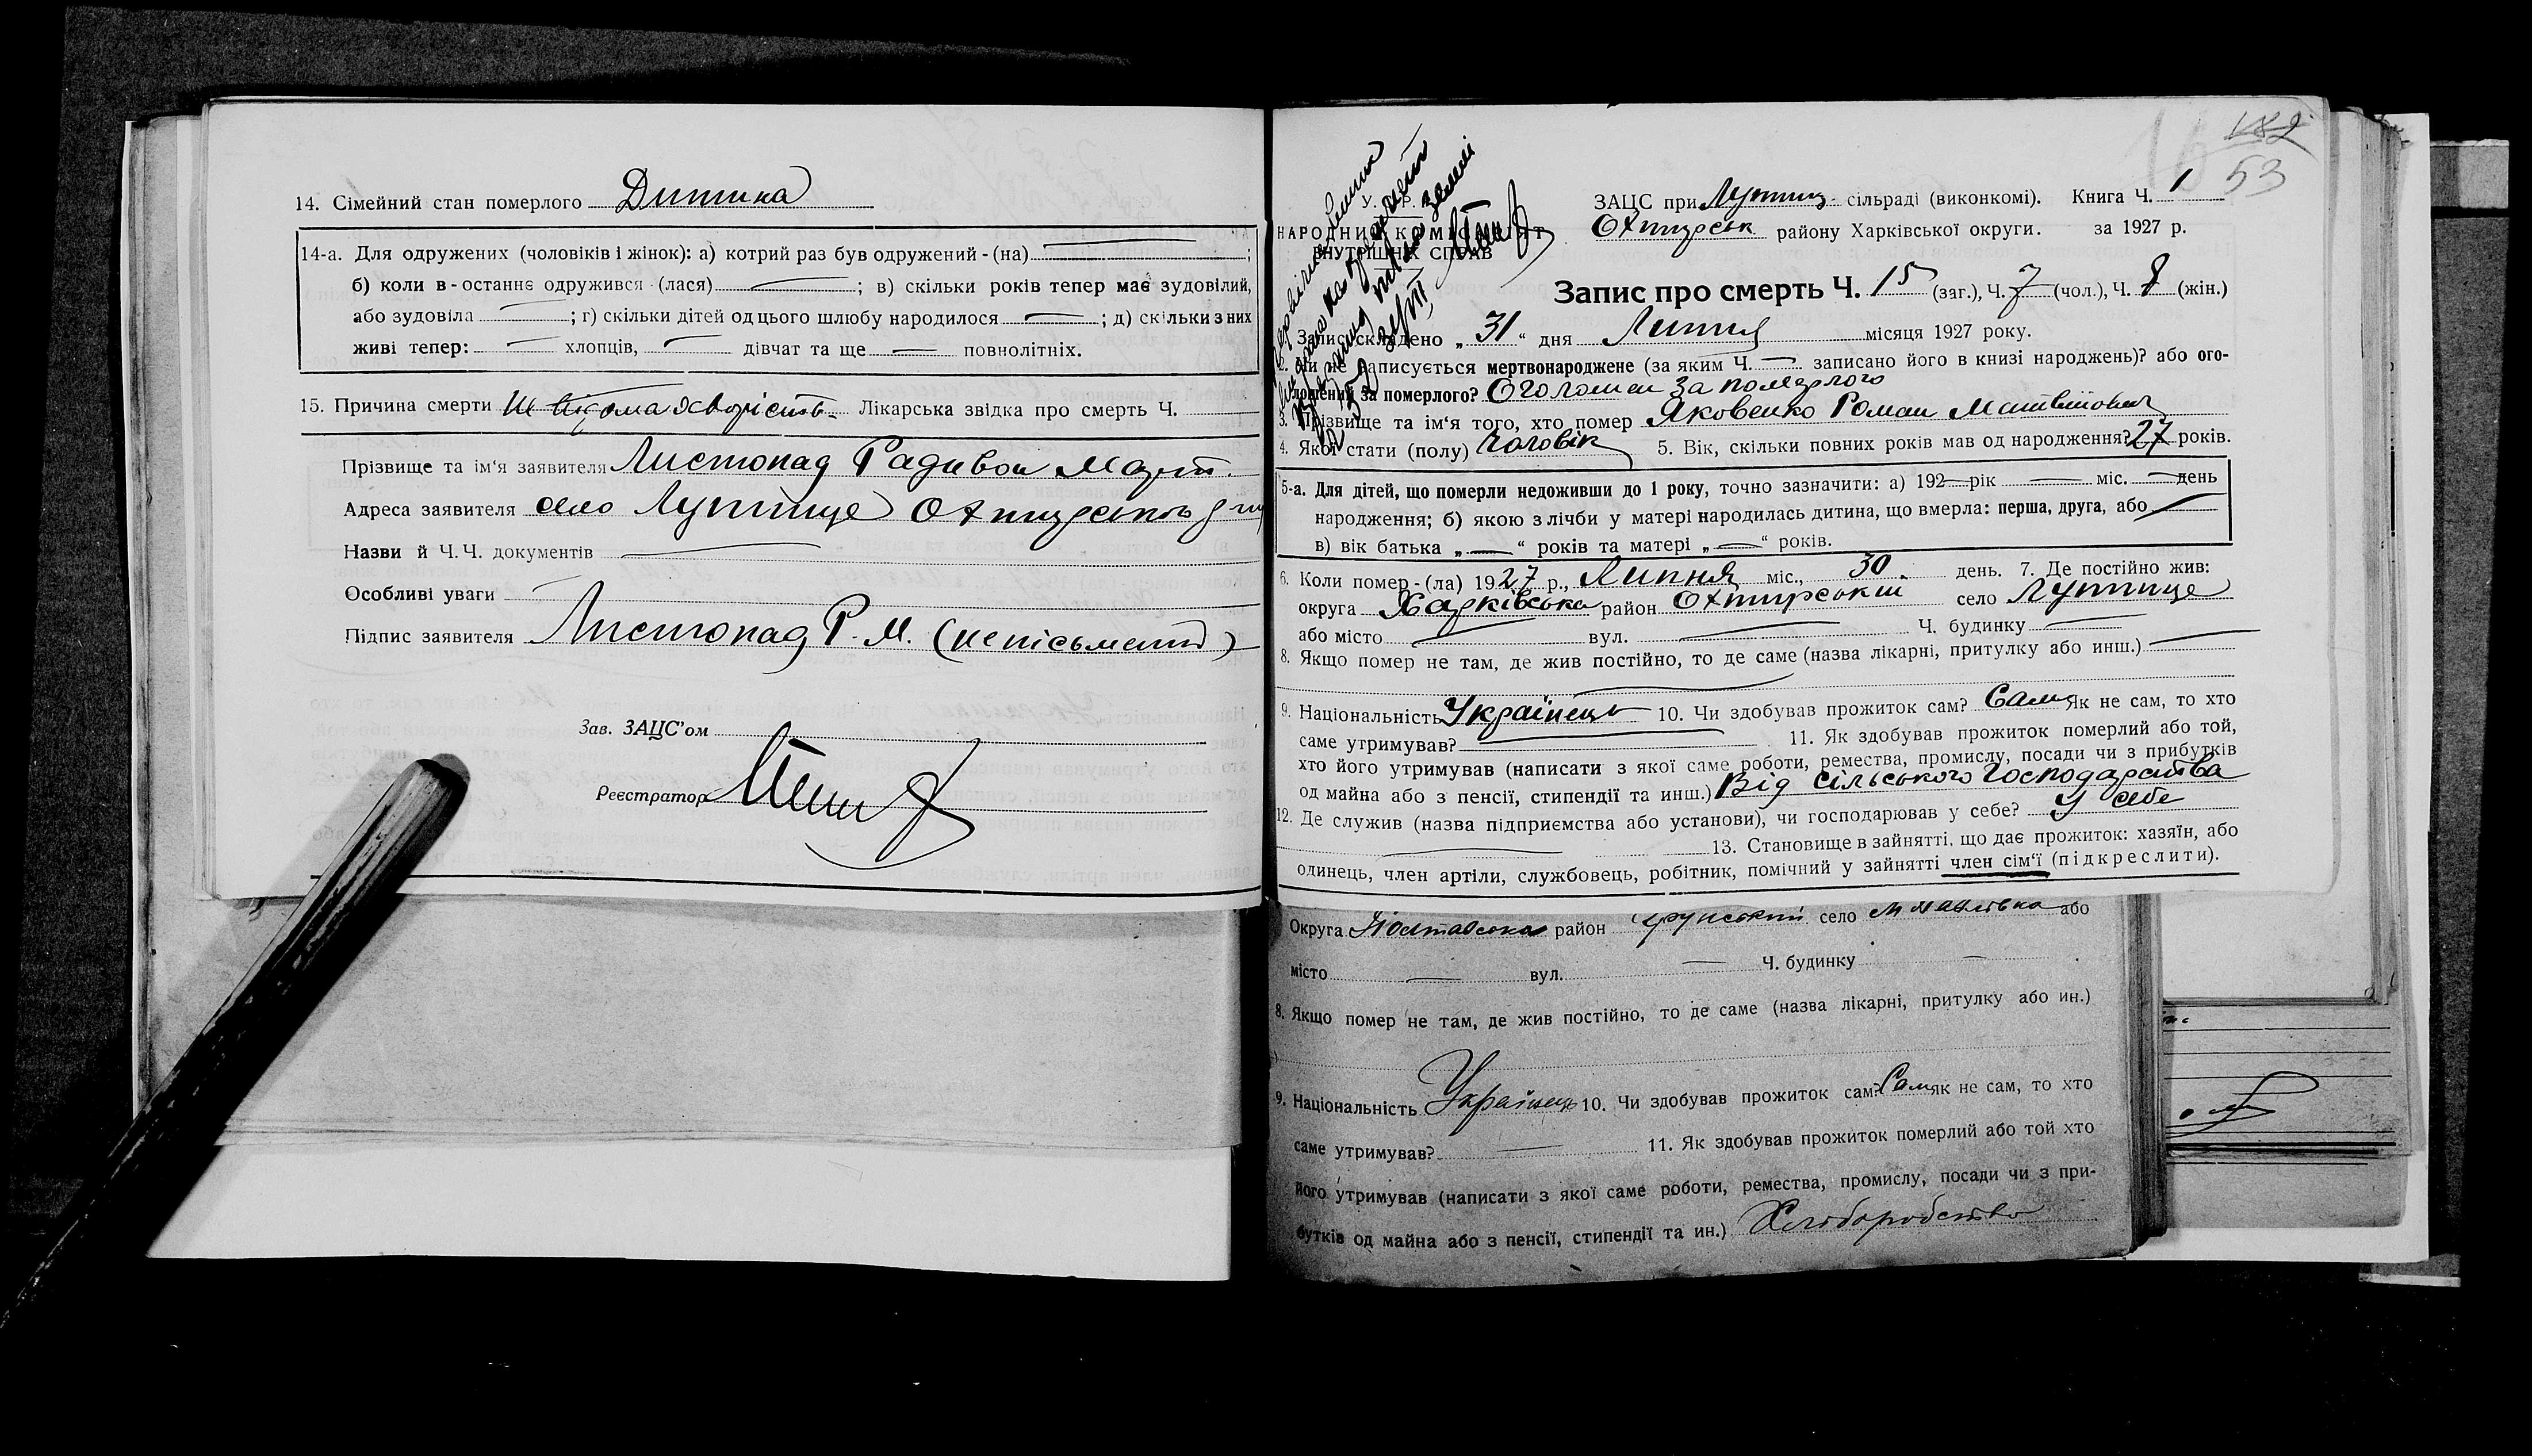 14. Сімейний стан померлого Дитина
14-а. Для одружених (чоловіків і жінок): а) котрий раз був одружений-(на) ;
б) коли в-останнє одружився (лася) ; в) скільки років тепер має зудовілий,
або зудовіла ; г) скільки дітей од цього шлюбу народилося ; д) скільки з них
живі тепер: хлопців, дівчат та ще повнолітніх.
15. Причина смерти хворість Лікарська звідка про смерть Ч.
Прізвище та ім'я заявителя Листопад Радивон Март.
Адреса заявителя село Лутище Охтирськ
Назви й Ч.Ч. документів
Особливі уваги
Підпис заявителя Листопад Р. М. (неписьмений)
Зав. ЗАЦС'ом
Реєстратор
182
53
У. Р.
НАРОДНИЙ КОМІСАРІЯТ
ВНУТРІШНІХ СПРАВ
ЗАЦС при Лутищ- сільраді (виконкомі). Книга Ч. 1
Охтирськ району Харківської округи. за 1927 р.
Запис про смерть Ч. 15 (заг.), Ч. 7 (чол.), Ч. 8 (жін.)
Запис складено „31“ дня Липня місяця 1927 року.
2. Чи не записується мертвонароджене (за яким Ч. записано його в книзі народжень)? або ого-
лошений за померлого? Оголошен за померлого
3. Прізвище та ім'я того, хто помер Яковенко Роман Матвійович
4. Якої стати (полу) Чоловік 5. Вік, скільки повних років мав од народження? 27 років.
5-а. Для дітей, що померли недоживши до 1 року, точно зазначити: а) 192 рік міс. день
народження; б) якою з лічби у матері народилась дитина, що вмерла: перша, друга, або
в) вік батька „ “ років та матері „ “ років.
6. Коли помер-(ла) 1927 р., Липня міс., 30. день. 7. Де постійно жив:
округа Харківська район Охтирський село Лутище
або місто вул. Ч. будинку
8. Якщо помер не там, де жив постійно, то де саме (назва лікарні, притулку або инш.)
9. Національність Українець 10. Чи здобував прожиток сам? Сам Як не сам, то хто
саме утримував? 11. Як здобував прожиток померлий або той,
хто його утримував (написати з якої саме роботи, ремества, промислу, посади чи з прибутків
од майна або з пенсії, стипендії та инш.) Від сільського господарства
12. Де служив (назва підприємства або установи), чи господарював у себе? У себе
13. Становище в зайнятті, що дає прожиток: хазяїн, або
одинець, член артіли, службовець, робітник, помічний у зайнятті член сім'ї (підкреслити).
Округа Полтавська район село або
місто вул. Ч. будинку
8. Якщо помер не там, де жив постійно, то де саме (назва лікарні, притулку або ин.)
9. Національність Українець 10. Чи здобував прожиток сам? Сам як не сам, то хто
саме утримував? 11. Як здобував прожиток померлий або той хто
його утримував (написати з якої саме роботи, ремества, промислу, посади чи з при-
бутків од майна або з пенсії, стипендії та ин.) Хліборобство